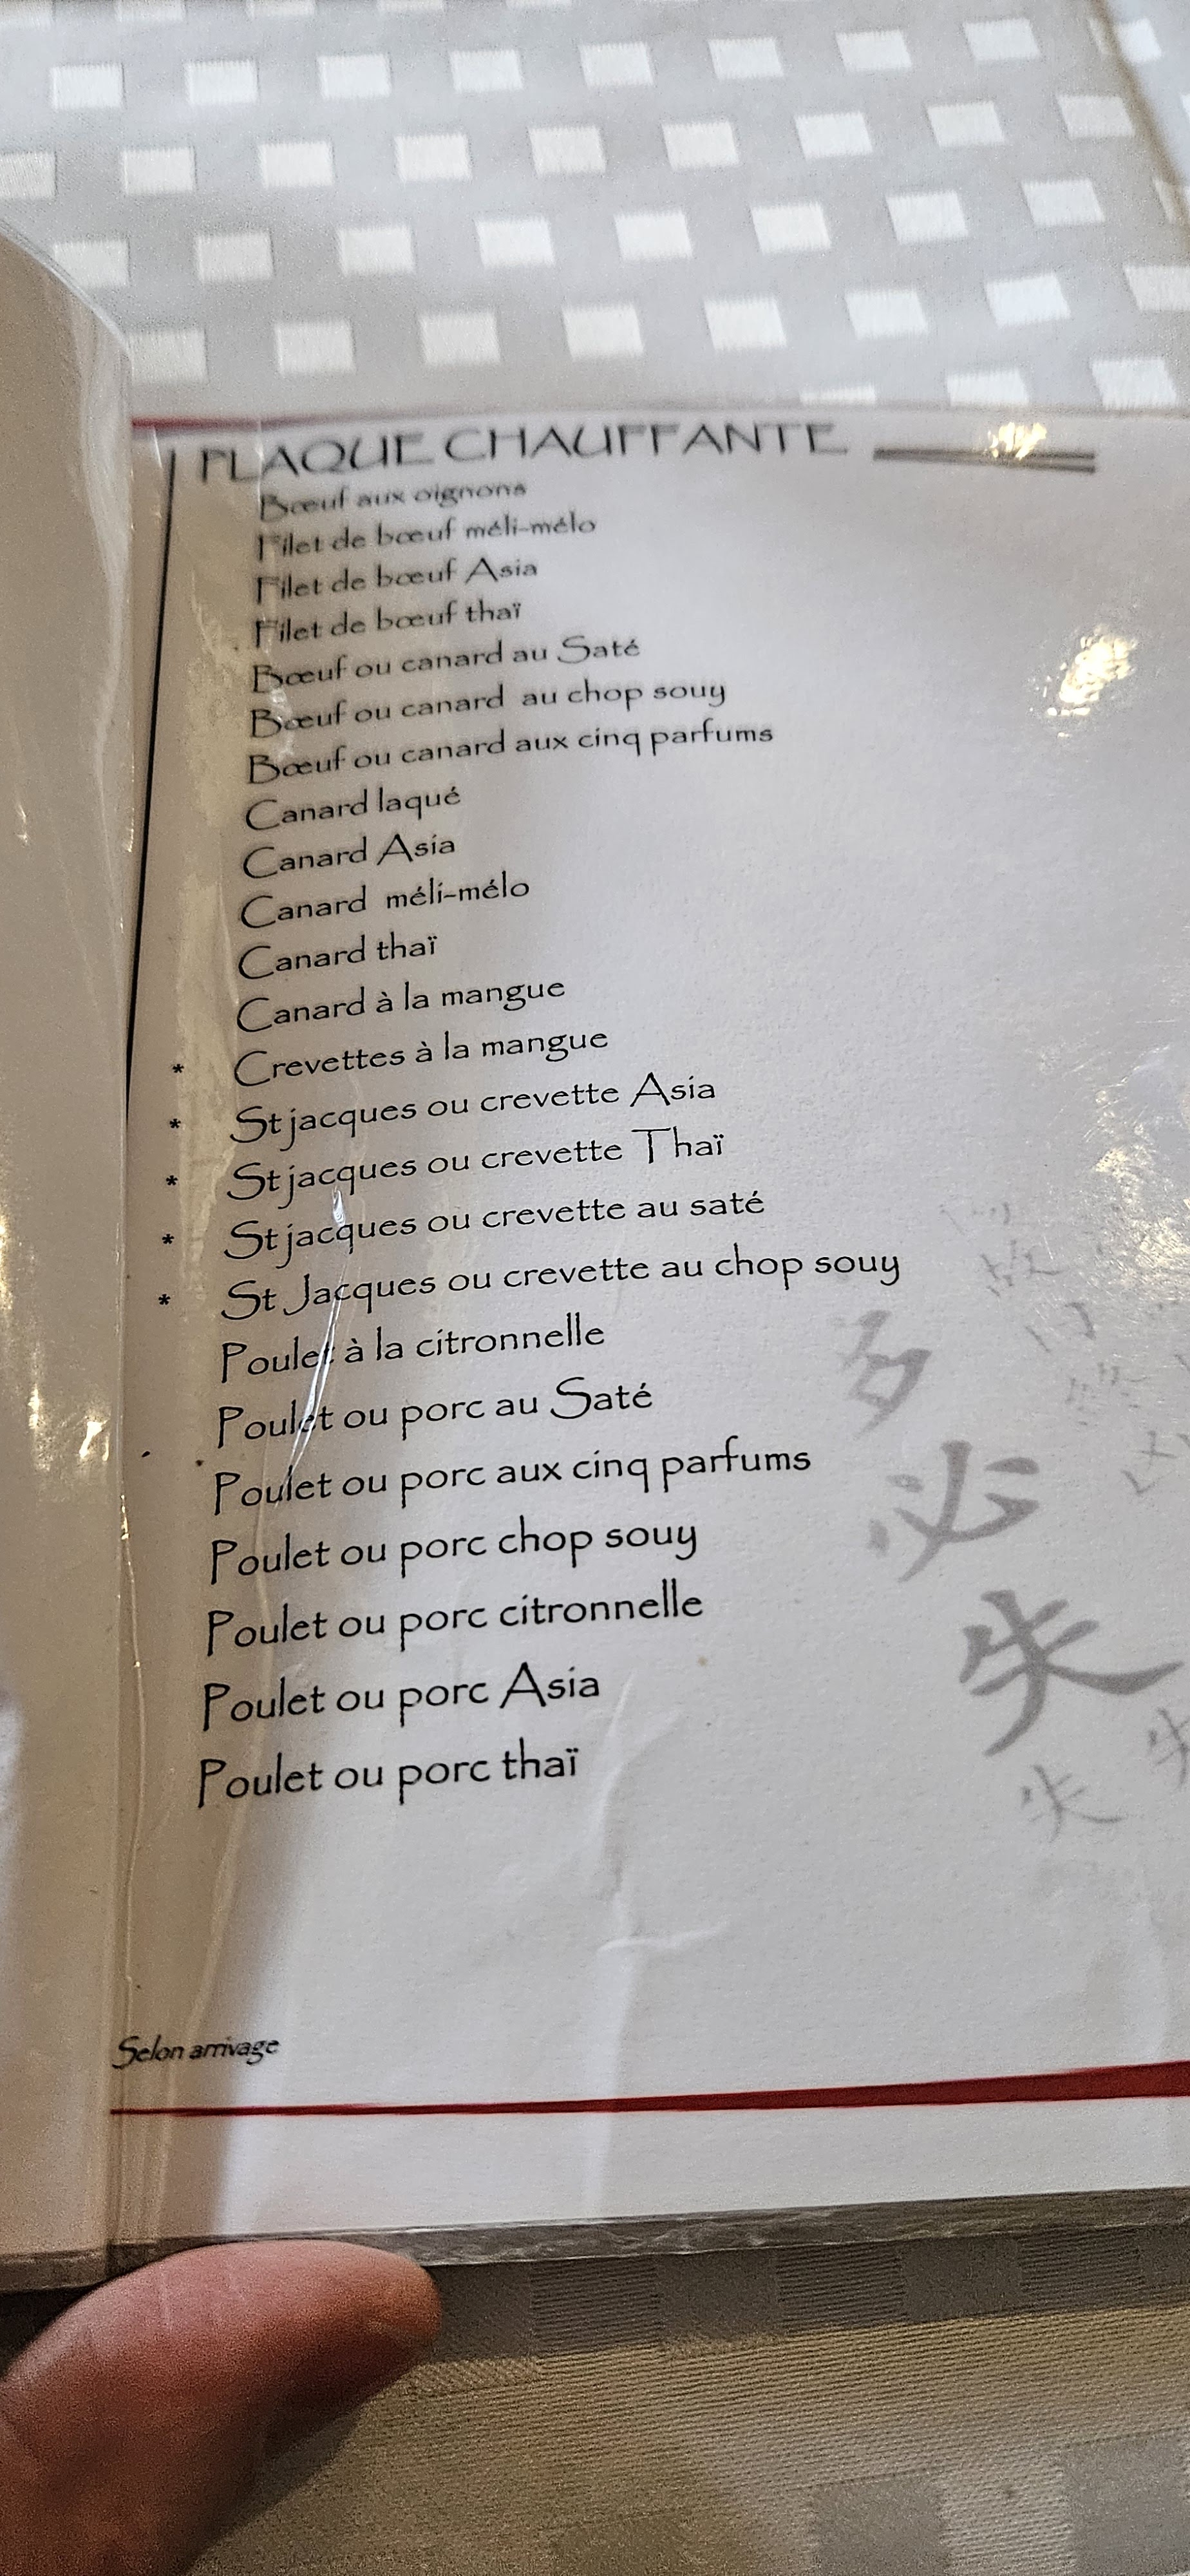 PLAQUE CHAUFFANTE
Bœuf aux oignons
Filet de bœuf méli-mélo
Filet de bœuf Asia
Filet de bœuf thaï
Bœuf ou canard au Saté
Bœuf ou canard au chop souy
Bœuf ou canard aux cinq parfums
Canard laqué
Canard Asia
Canard méli-mélo
Canard thaï
Canard à la mangue
* Crevettes à la mangue
* St jacques ou crevette Asia
* St jacques ou crevette Thaï
* St jacques ou crevette au saté
* St Jacques ou crevette au chop souy
Poulet à la citronnelle
Poulet ou porc au Saté
Poulet ou porc aux cinq parfums
Poulet ou porc chop souy
Poulet ou porc citronnelle
Poulet ou porc Asia
Poulet ou porc thaï
Selon arrivage